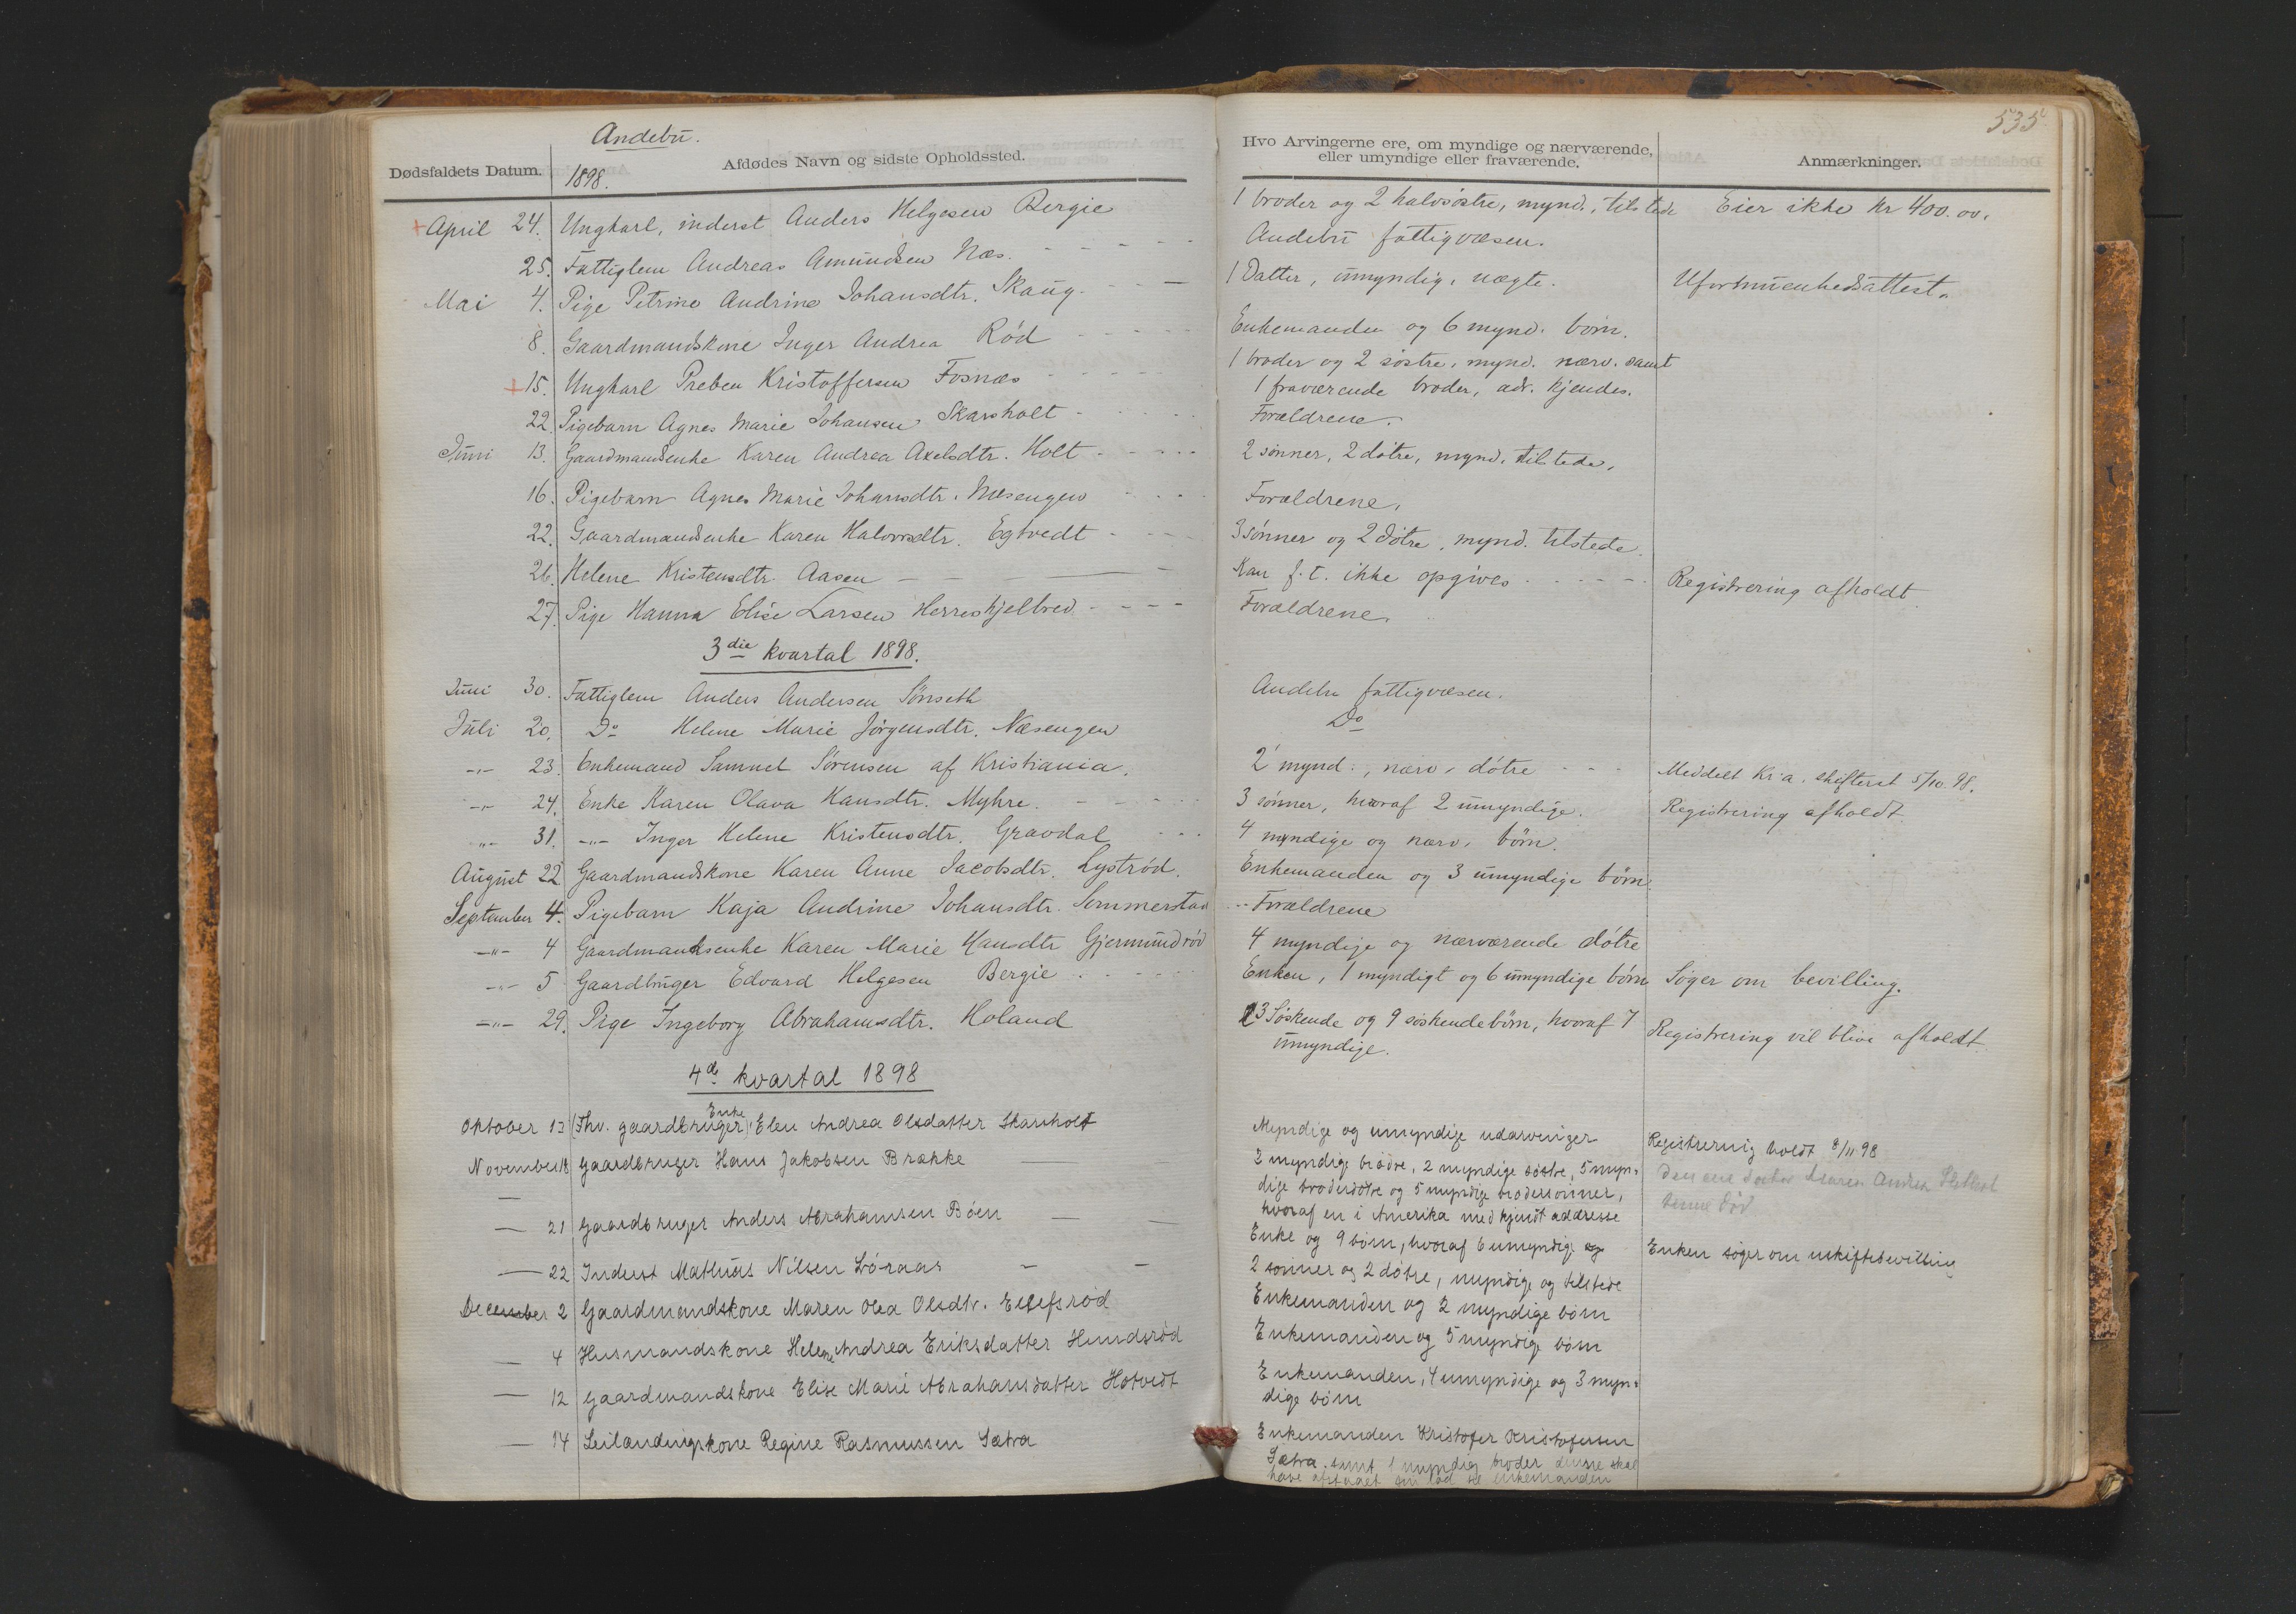 Andebu.
Dødsfaldets Datum.
1898.
Afdødes Navn og sidste Opholdssted.
April 24. Ungkarl, inderst Anders Helgesen Bergie
25. Fattiglem Andreas Amundsen Næs.
Mai 4. Pige Petrine Andrine Johansdtr. Skaug.
8. Gaardmandskone Inger Andrea Rød
15. Ungkarl Preben Kristoffersen Fosnæs
22. Pigebarn Agnes Marie Johansen Skarsholt
Juni 13. Gaardmandsenke Karen Andrea Axelsdtr. Holt
16. Pigebarn Agnes Marie Johansdtr. Næsengen
22. Gaardmandsenke Karen Halvorsdtr. Egtvedt
26. Helene Kristensdtr. Aasen
27. Pige Hanna Elise Larsen Herreskjelbred
3die kvartal 1898.
Juni 30. Fattiglem Anders Andersen Sønseth
Juli 20. Do Helene Marie Jörgensdtr. Næsengen
-"- 23. Enkemand Samuel Sørensen af Kristiania.
-"- 24. Enke Karen Olava Hansdtr. Myhre.
-"- 31. -"- Inger Helene Kristensdtr. Gravdal
August 22 Gaardmandskone Karen Anne Jacobsdtr. Lystrød.
September 4. Pigebarn Kaja Andrine Johansdtr. Sommerstad
-"- 4 Gaardmandsenke Karen Marie Hansdtr Gjermundrød
-"- 5 Gaardbruger Edvard Helgesen Bergie
-"- 29. Pige Ingeborg Abrahamsdtr. Holand
4de kvartal 1898
Enke
Oktober 13 (Fhv. gaardbruger) Elen Andrea Olsdatter Skarsholt
November 18 Gaardbruger Hans Jakobsen Brække
— 21 Gaardbruger Anders Abrahamsen Böen
— 22 Inderst Mathias Nilsen Löraas
December 2 Gaardmandskone Maren Olea Olsdtr. Ellefsrød
— 4 Husmandskone Helene Andrea Eriksdatter Hundsröd
— 12 Gaardmandskone Elise Marie Abrahamsdatter Hotvedt
— 14 Leilændingskone Regine Rasmussen Sætra
535
Hvo Arvingerne ere, om myndige og nærværende,
eller umyndige eller fraværende.
Anmærkninger.
1 broder og 2 halvsøstre, mynd., tilstede Eier ikke Kr 400.00.
Andebu fattigvæsen.
1 Datter, umyndig, uægte. Uformuenhedsattest.
Enkemanden og 6 mynd. børn.
1 broder og 2 søstre, mynd. nærv. samt
1 fraværende broder, adr. kjendes.
Forældrene.
2 sønner, 2 døtre, mynd. tilstede.
Forældrene.
3 sønner og 2 døtre, mynd. tilstede.
Kan f.t. ikke opgives Registrering afholdt
Forældrene.
Andebu fattigvæsen.
Do
2 mynd., nærv. døtre Meddelt Kr.a. skifteret 5/10.98.
3 sønner, hvoraf 2 umyndige. Registrering afholdt.
4 myndige og nærv. børn.
Enkemanden og 3 umyndige børn.
Forældrene
4 myndige og nærværende døtre
Enken, 1 myndigt og 6 umyndige børn Søger om bevilling.
3 Søskende og 9 søskendebørn, hvoraf 7 Registrering vil blive afholdt.
umyndige.
Myndige og umyndige udarvinger Registrering holdt 8/11 98
3 myndige brødre, 2 myndige søstre, 5 myn-
dige broderdötre og 5 myndige brodersønner,
hvoraf en i Amerika med kjendt addresse
Den ene Maren Andrea
død
Enke og 9 börn, hvoraf 6 umyndige Enken søger om uskiftebevilling
2 sønner og 2 dötre, myndige og tilstede
Enkemanden og 2 myndige börn
Enkemanden og 5 myndige börn
Enkemanden, 4 umyndige og 3 myn-
dige börn
Enkemanden Kristofer Kristofersen
Sætra, samt 1 myndig broder denne skal
have afstaaet sin lod til enkemanden